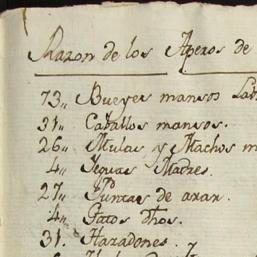 Razon de los Aperos de
73,, Bueyes mansos Lab
31,, Caballos mansos.
26,, Mulas y Machos m
4,, Yeguas Madres.
27,, Puntas de arar.
4,, dhos.
31. Hazadones.